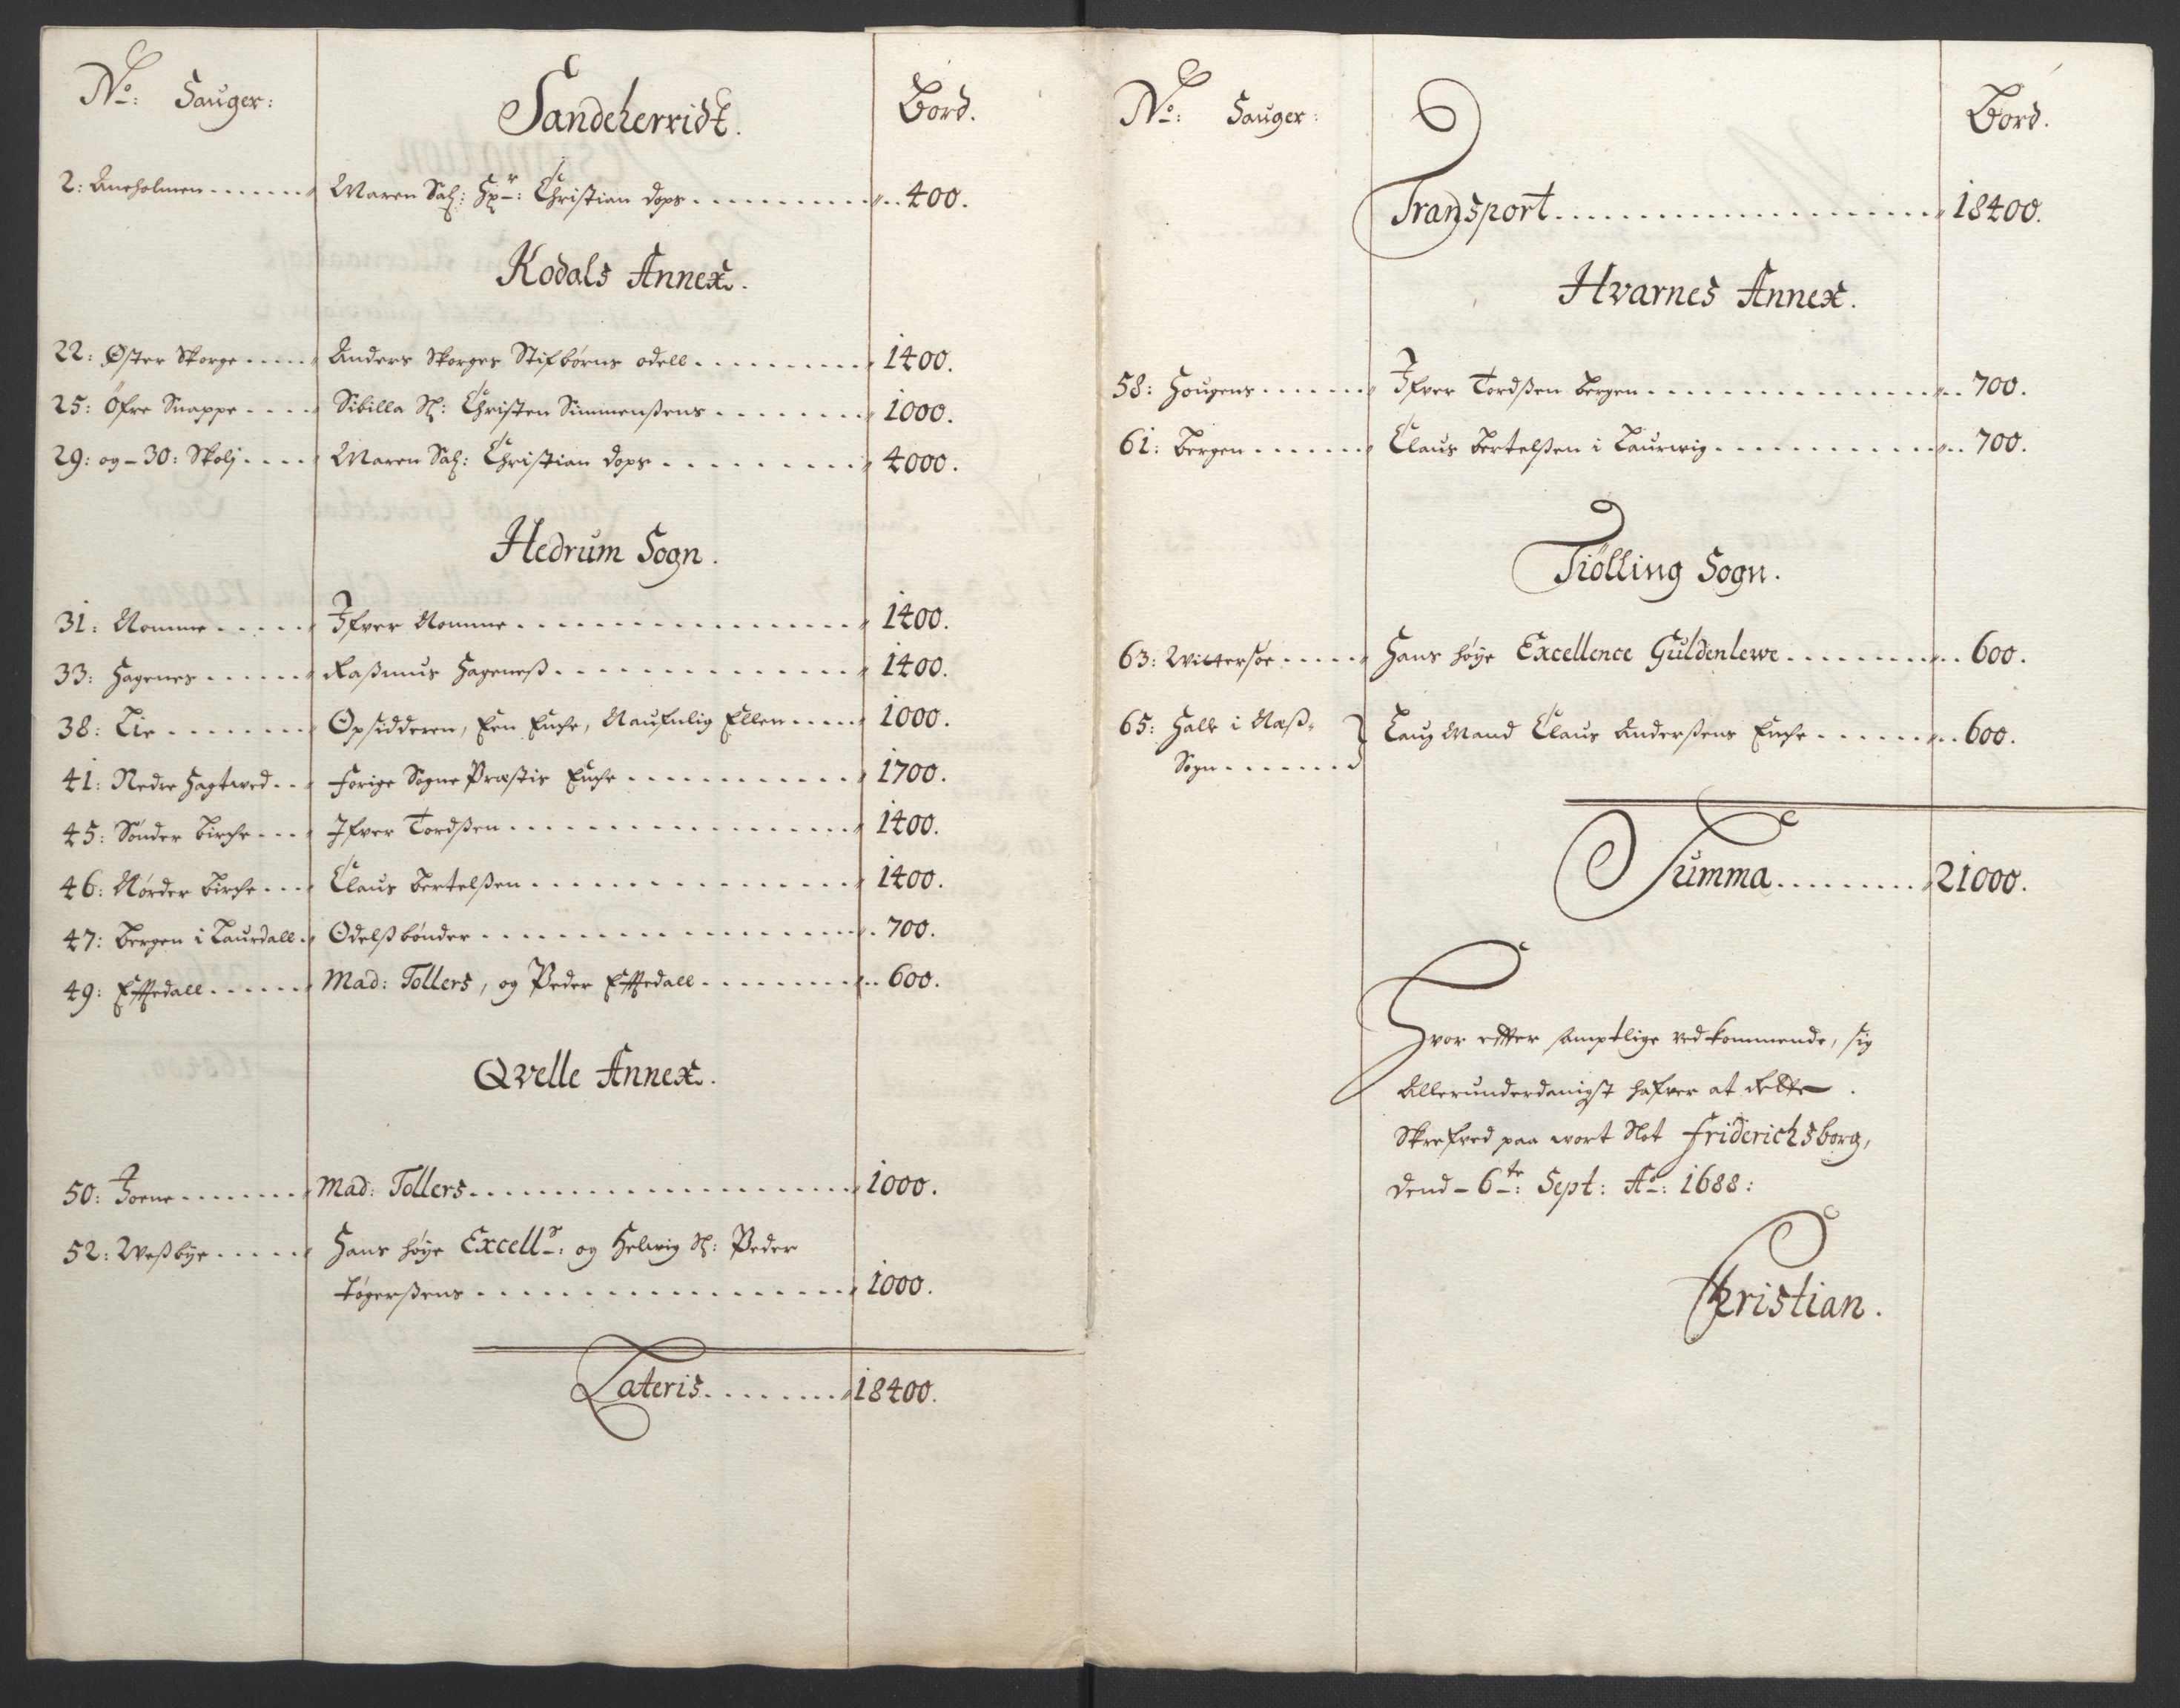 No: Sauger:
Sandeherridt.
Bord.
2: Aneholmen
Maren Sal: Hr: Christian Dops
400.
Kodals Annex.
22: Øster Skorge
Anders Skorges Stifbørns odell
1400.
25: Øfre Snappe
Sibilla Sl: Christen Simmenßens
1000.
29: og 30: Skolj
Maren Sal: Christian Dops
4000.
Hedrum Sogn.
31: Nomme
Ifver Nomme
1400.
33: Hagenes
Raßmus Hageneß
1400.
38: Lie
Opsidderen, Een Enche, Naufnlig Ellen
1000.
41: Nedre Hagtved
Forige Sogne Præstis Enche
1700.
45: Sønder Birche
Ifver Tordßen
1400.
46: Nørder Birche
Claus Bertelßen
1400.
47: Bergen i Laurdall
Odelßbønder
700.
49: Effedall
Mad: Tollers, og Peder Effedall
600.
Qvelle Annex.
50: Joene
Mad: Tollers
1000.
52: Weßbye
Hans høye Excell: og Helwig Sl: Peder
Tøgerßens
1000.
Lateris 18400.
No: Sauger:
Bord.
Transport 18400.
Hvarnes Annex.
58: Hougens
Ifver Tordßen Bergen
700.
61: Bergen
Claus Bertelßen i Laurwig
700.
Tiølling Sogn.
63: Wittersøe
Hans høye Excellence Guldenlewe
600.
65: Halle i Næß-
Sogn
Laug Mand Claus Anderßens Enche
600.
Summa 21000.
Hvor effter samptlige vedkommende, sig
Allerunderdanigst hafver at rette.
Skrefved paa wort Slot Friderichsborg,
Dend 6te: Sept: Ao: 1688:
Christian.